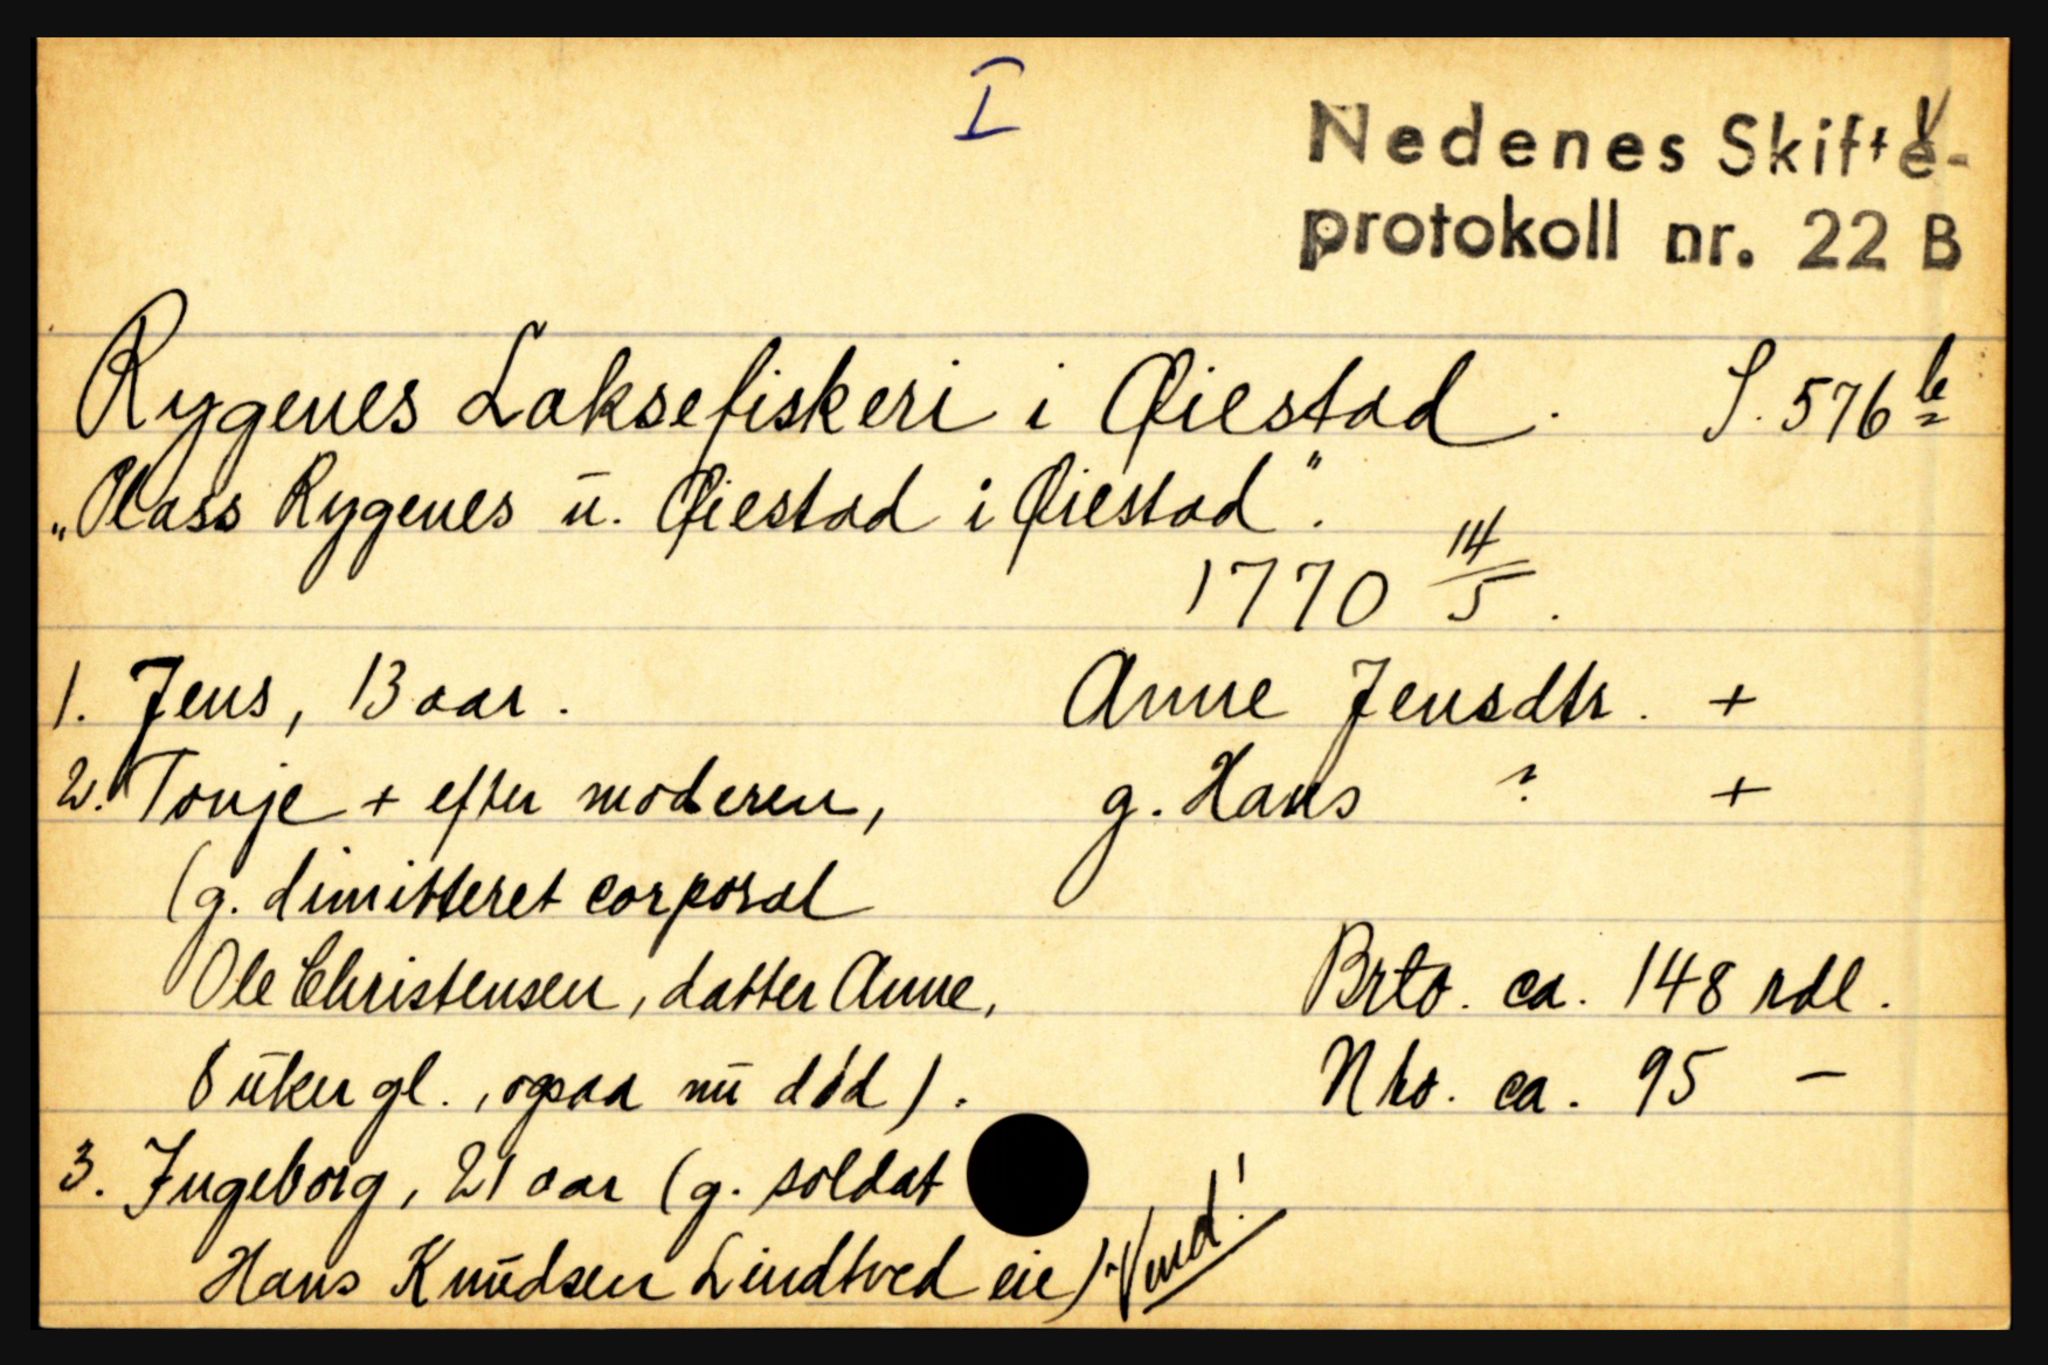 I
Nedenes Skifte-
protokoll nr. 22 B
Rygenes Laksefiskeri i Øiestad. S. 576 b
"Plass Rygenes u. Øiestad i Øiestad".
1770 14/5.
1. Jens, 13 aar. Anne Jensdtr. +
2. Tonje + efter moderen, g. Hans ? +
(g. dimitteret corporal
Ole Christensen, datter Anne, Brto. ca. 148 rdl.
8 uker gl., ogsaa nu død). Nto. ca. 95 —
3. Ingeborg, 21 aar (g. soldat
Hans Knudsen Lindtved eie) Vend!